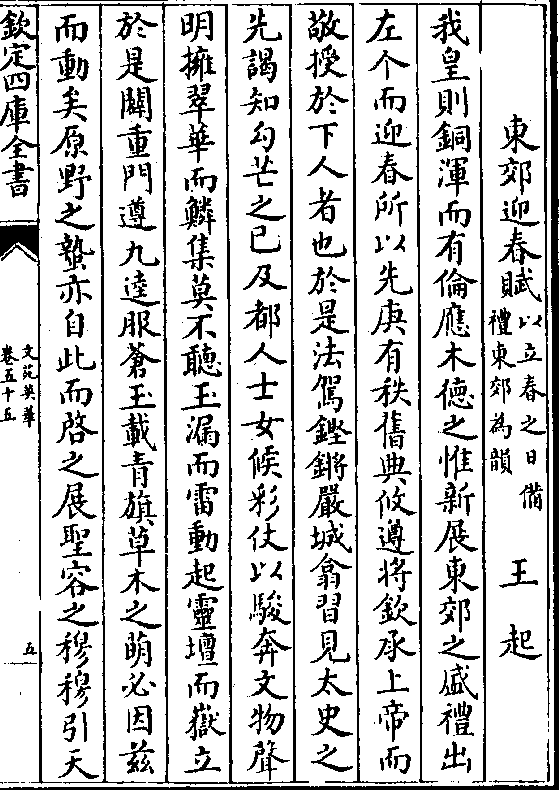 東郊迎春賦以立春之日備禮東郊為韻 王起
我皇則銅渾而有倫應木徳之惟新展東郊之盛禮出
左个而迎春所以先庚有秩舊典攸遵將欽承上帝而
敬授於下人者也於是法駕鏗鏘嚴城翕習見太史之
先謁知勾芒之已及都人士女候彩仗以駿奔文物聲
明擁翠華而鱗集莫不聽玉漏而雷動起靈壇而嶽立
於是闢重門遵九逵服蒼玉載青旗草木之萌必因兹
而動矣原野之蟄亦自此而啓之展聖容之穆穆引天
欽定四庫全書
文苑英華
卷五十五
五